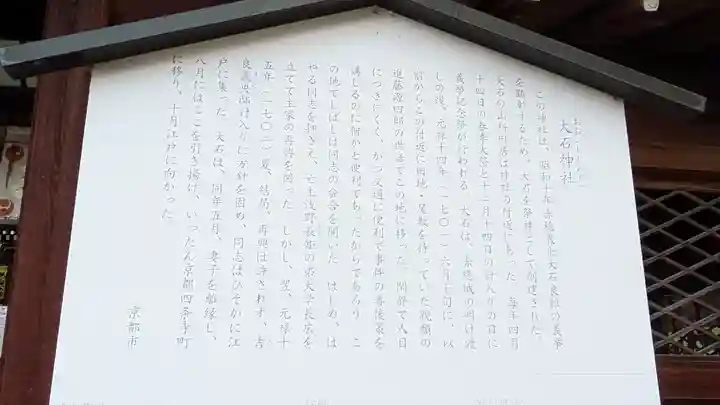 おおいしじんじゃ
大石神社
この神社は、昭和十年赤穂義士大石良雄の義挙
を顕彰するため、大石を祭神として創建された。
大石の山科閑居は神社の付近にあった。毎年四月
十四日の春季大祭と十二月十四日の討入りの日に
義挙記念祭が行われる。大石は、赤穂城の明け渡
しの後、元禄十四年(一七〇一)六月下旬に、以
前からこの付近に田地・屋敷を持っていた親類の
進藤源四郎の世話でこの地に移った。閑静で人目
につきにくく、かつ交通に便利で事件の善後策を
講じるのに何かと便利であったからであろう。こ
の地でしばしば同志の会合を開いた。はじめ、は
やる同志を押さえ、亡主浅野長矩の弟大学長広を
立てて主家の再興を図った。しかし、翌、元禄十
五年(一七〇二)夏、結局、再興は許されず、吉
良義央邸討入りに方針を固め、同志はひそかに江
戸に集った。大石は、同年五月、妻子を離縁し、
八月にはここを引き揚げ、いったん京都四条寺町
に移り、十月江戸に向かった。
京都市